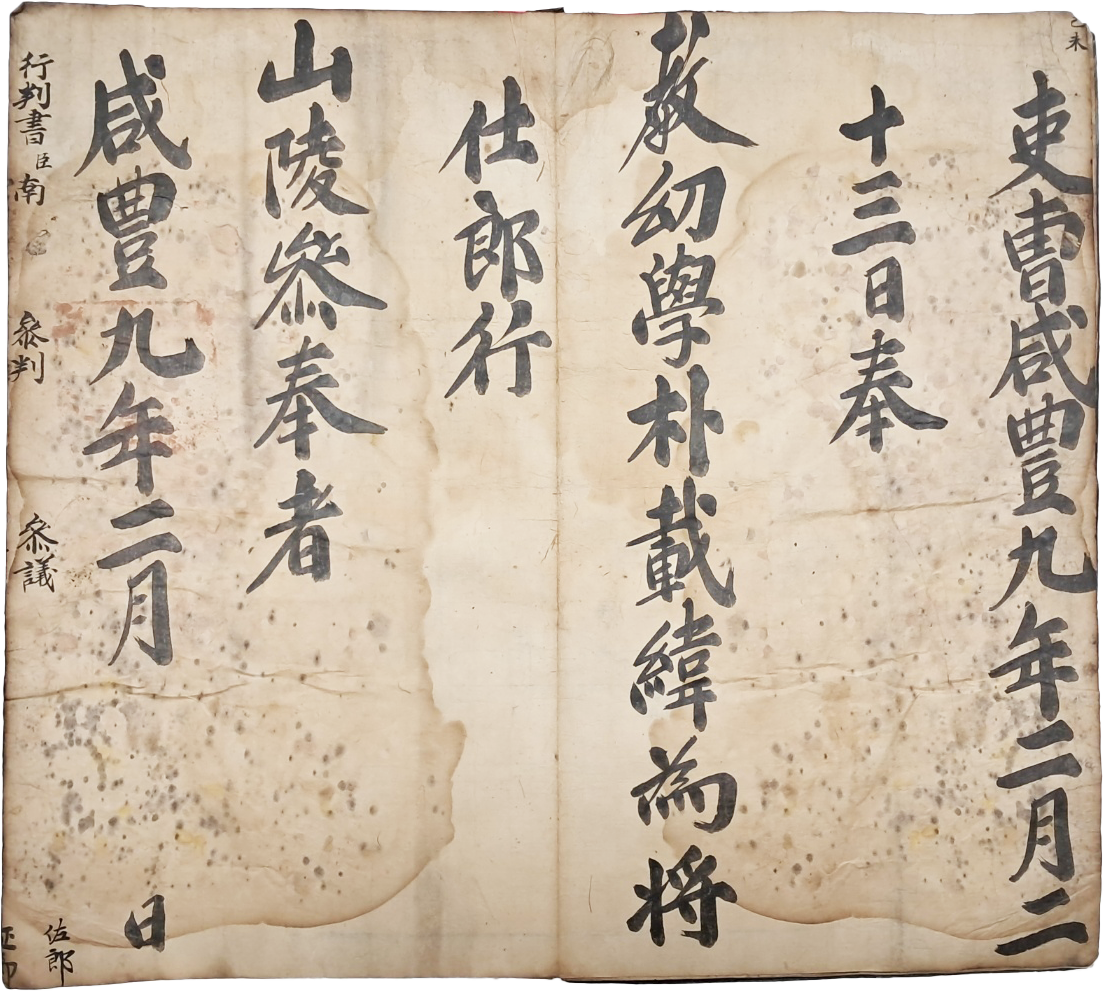 己未
吏曹咸豐九年二月二
十三日奉
敎幼學朴載緯為將
仕郎行
山陵參奉者
咸豐九年二月 日
行判書臣南 參判 參議 佐郎